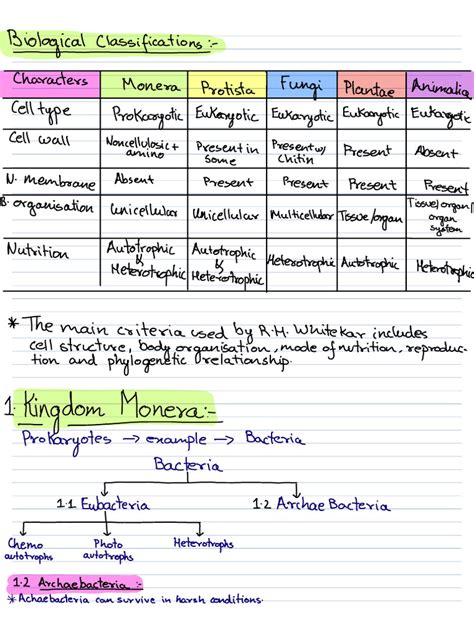 Biological Classifications :-
Characters Monera Protista Fungi Plantae Animalia
Cell type Prokaryotic Eukaryotic Eukaryotic Eukaryotic Eukaryotic
Cell wall Noncellulosic + amino Present in some Present w/ chitin Present Absent
N. membrane Absent Present Present Present Present
B. organisation Unicellular Unicellular Multicellular Tissue/organ Tissue/organ/ organ system
Nutrition Autotrophic & Heterotrophic Autotrophic & Heterotrophic Heterotrophic Autotrophic Heterotrophic
* The main criteria used by R.H. Whitekar includes
cell structure, body organisation, mode of nutrition, reproduc-
tion and phylogenetic relationship.
1. Kingdom Monera:-
Prokaryotes → example → Bacteria
Bacteria
1.1 Eubacteria 1.2 Archae Bacteria
Chemo autotrophs Photo autotrophs Heterotrophs
1.2 Archaebacteria :-
* Achaebacteria can survive in harsh conditions.